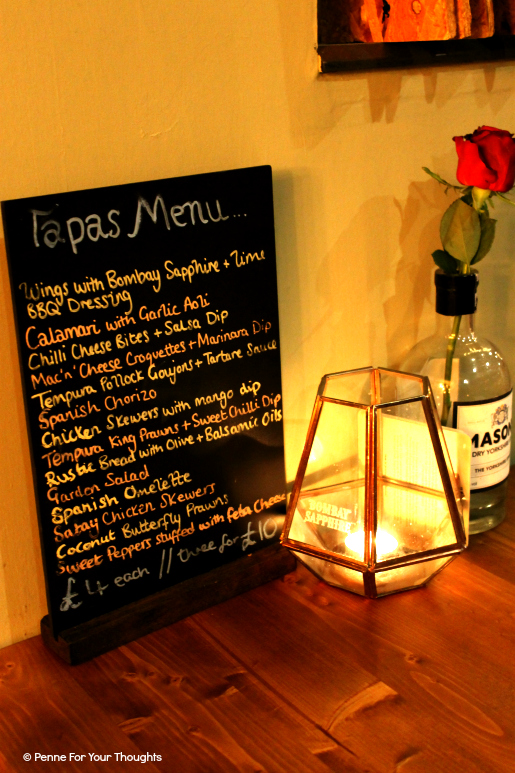 Tapas Menu...
Wings with Bombay Sapphire + Lime
BBQ Dressing
Calamari with Garlic Aoli
Chilli Cheese Bites + Salsa Dip
Mac'n'Cheese Croquettes + Marinara Dip
Tempura Pollock Goujons + Tartare Sauce
Spanish Chorizo
Chicken Skewers with mango dip
Tempura King Prawns + Sweet Chilli Dip
Rustic Bread with Olive + Balsamic Oils
Garden Salad
Spanish Omelette
Satay Chicken Skewers
Coconut Butterfly Prawns
Sweet Peppers stuffed with feta Cheese
£4 each // three for £10
BOMBAY
SAPPHIRE
MASON
DRY YORKSHIRE
THE YORKSHIRE
© Penne For Your Thoughts